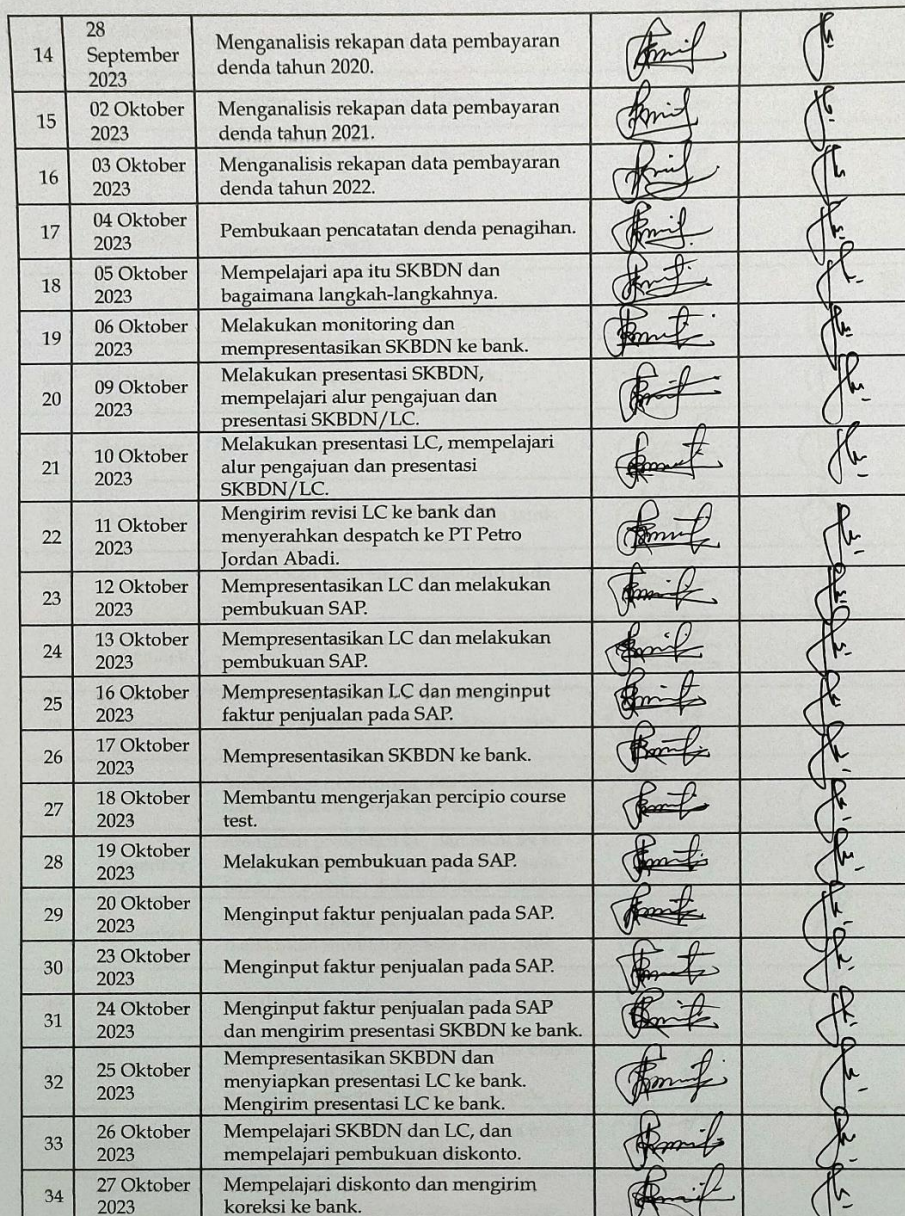 14
28
September
2023
Menganalisis rekapan data pembayaran
denda tahun 2020.
15
02 Oktober
2023
Menganalisis rekapan data pembayaran
denda tahun 2021.
16
03 Oktober
2023
Menganalisis rekapan data pembayaran
denda tahun 2022.
17
04 Oktober
2023
Pembukaan pencatatan denda penagihan.
18
05 Oktober
2023
Mempelajari apa itu SKBDN dan
bagaimana langkah-langkahnya.
19
06 Oktober
2023
Melakukan monitoring dan
mempresentasikan SKBDN ke bank.
20
09 Oktober
2023
Melakukan presentasi SKBDN,
mempelajari alur pengajuan dan
presentasi SKBDN/LC.
21
10 Oktober
2023
Melakukan presentasi LC, mempelajari
alur pengajuan dan presentasi
SKBDN/LC.
22
11 Oktober
2023
Mengirim revisi LC ke bank dan
menyerahkan despatch ke PT Petro
Jordan Abadi.
23
12 Oktober
2023
Mempresentasikan LC dan melakukan
pembukuan SAP.
24
13 Oktober
2023
Mempresentasikan LC dan melakukan
pembukuan SAP.
25
16 Oktober
2023
Mempresentasikan LC dan menginput
faktur penjualan pada SAP.
26
17 Oktober
2023
Mempresentasikan SKBDN ke bank.
27
18 Oktober
2023
Membantu mengerjakan percipio course
test.
28
19 Oktober
2023
Melakukan pembukuan pada SAP.
29
20 Oktober
2023
Menginput faktur penjualan pada SAP.
30
23 Oktober
2023
Menginput faktur penjualan pada SAP.
31
24 Oktober
2023
Menginput faktur penjualan pada SAP
dan mengirim presentasi SKBDN ke bank.
32
25 Oktober
2023
Mempresentasikan SKBDN dan
menyiapkan presentasi LC ke bank.
Mengirim presentasi LC ke bank.
33
26 Oktober
2023
Mempelajari SKBDN dan LC, dan
mempelajari pembukuan diskonto.
34
27 Oktober
2023
Mempelajari diskonto dan mengirim
koreksi ke bank.